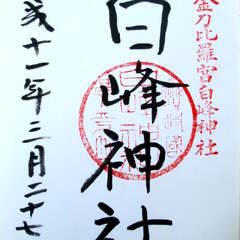 金刀比羅宮白峰神社
白峰神社
成十一年三月二十七